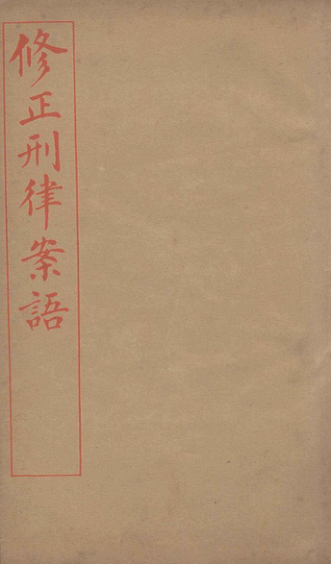 修正刑律案語